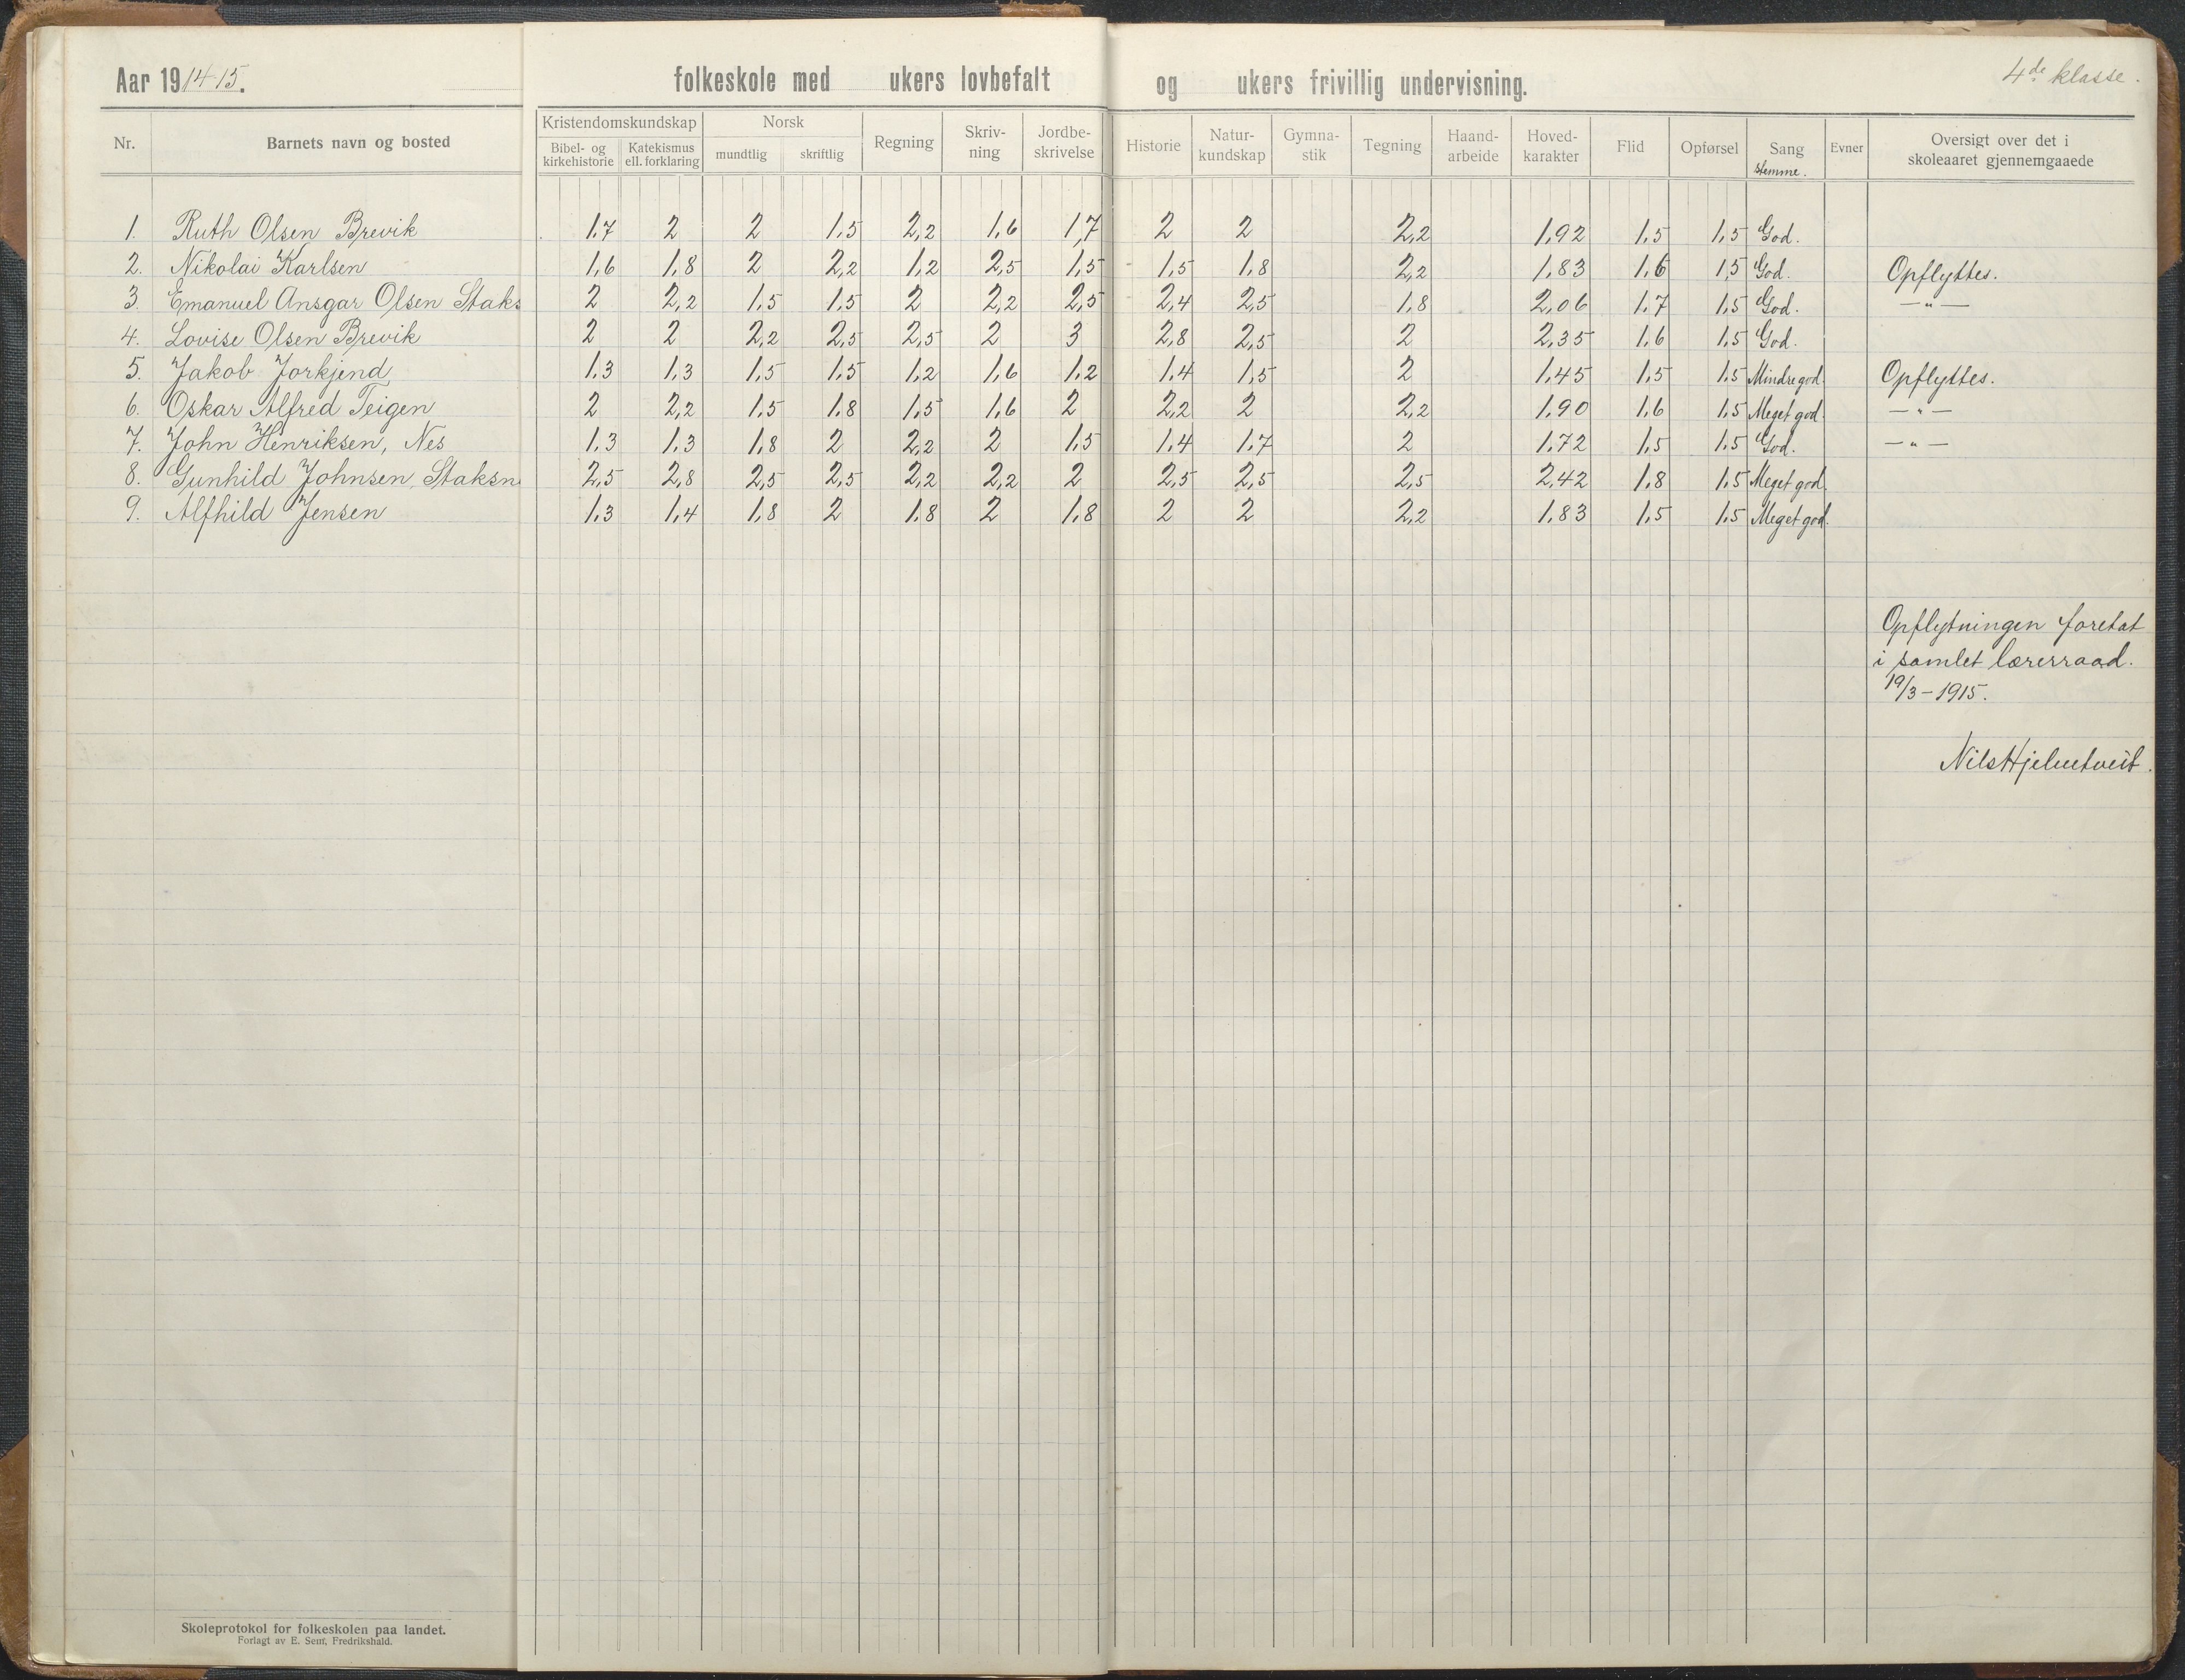 Aar 1914-15. folkeskole med ukers lovbefalt og ukers frivillig undervisning. 4de klasse.
Nr. Barnets navn og bosted Kristendomskundskap Norsk Regning Skriv-ning Jordbe-skrivelse Historie Natur-kundskap Gymna-stik Tegning Haand-arbeide Hoved-karakter Flid Opførsel Sang stemme. Evner Oversigt over det i skoleaaret gjennemgaaede
Bibel- og kirkehistorie Katekismus ell. forklaring mundtlig skriftlig
1. Ruth Olsen Brevik 1.7 2 2 1.5 2,2 1,6 1,7 2 2 2,2 1,92 1,5 1,5 God.
2. Nikolai Karlsen 1,6 1,8 2 2,2 1,2 2,5 1,5 1,5 1,8 2,2 1,83 1,6 1,5 God. Opflyttes.
3. Emanuel Ansgar Olsen Staks 2 2,2 1,5 1,5 2 2,2 2,5 2,4 2,5 1,8 2,06 1,7 1,5 God. — " —
4. Lovise Olsen Brevik 2 2 2,2 2,5 2,5 2 3 2,8 2,5 2 2,35 1,6 1,5 God.
5. Jakob Jorkjend 1.3 1,3 1,5 1,5 1,2 1,6 1,2 1,4 1,5 2 1,45 1,5 1,5 Mindre god. Opflyttes.
6. Oskar Alfred Teigen 2 2,2 1,5 1,8 1,5 1,6 2 2,2 2 2,2 1,90 1,6 1,5 Meget god. — " —
7. John Henriksen, Nes 1,3 1,3 1,8 2 2,2 2 1,5 1,4 1,7 2 1,72 1,5 1,5 God. — " —
8. Gunhild Johnsen, Staksn 2,5 2,8 2,5 2,5 2,2 2,2 2 2,5 2,5 2,5 2,42 1,8 1,5 Meget god.
9. Alfhild Jensen 1,3 1,4 1,8 2 1,8 2 1,8 2 2 2,2 1,83 1,5 1,5 Meget god.
Opflytningen foretat
i samlet lærerraad.
19/3 – 1915.
Nils Hjelmtveit.
Skoleprotokol for folkeskolen paa landet.
Forlagt av E. Sem, Fredrikshald.